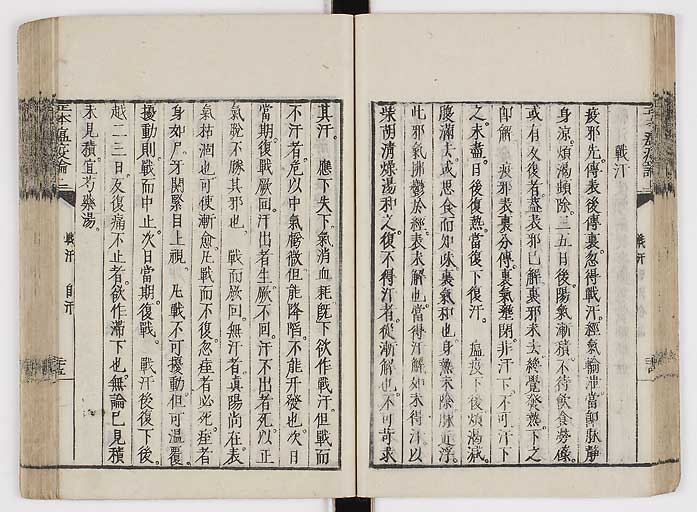 戰汗
疫邪先傳表後傳裏忽得戰汗經氣輸泄當即脈靜
身涼煩渴頓除三五日後陽氣漸積不待飲食勞傷
或有反復者蓋表邪已解裏邪未去纔覺發熱下之
即解 疫邪表裏分傳裏氣壅閉非汗下不可汗下
之未盡日後復熱當復下復汗 瘟疫下後煩渴減
腹滿去或思食而知味裏氣和也身熱未除脈近浮
此邪氣拂鬱於經表未解也當得汗解如未得汗以
柴胡清燥湯和之復不得汗者從漸解也不可苛求
其汗 應下失下氣消血耗既下欲作戰汗但戰而
不汗者危以中氣虧微但能降陷不能升發也次日
當期復戰厥回汗出者生厥不回汗不出者死以正
氣脫不勝其邪也 戰而厥回無汗者真陽尚在表
氣枯涸也可使漸愈凡戰而不復忽痙者必死痙者
身如尸牙關緊目上視 凡戰不可擾動但可温覆
擾動則戰而中止次日當期復戰 戰汗後復下後
越二三日反復痛不止者欲作滯下也無論已見積
未見積宜芍藥湯
戰汗 自汗
戰汗